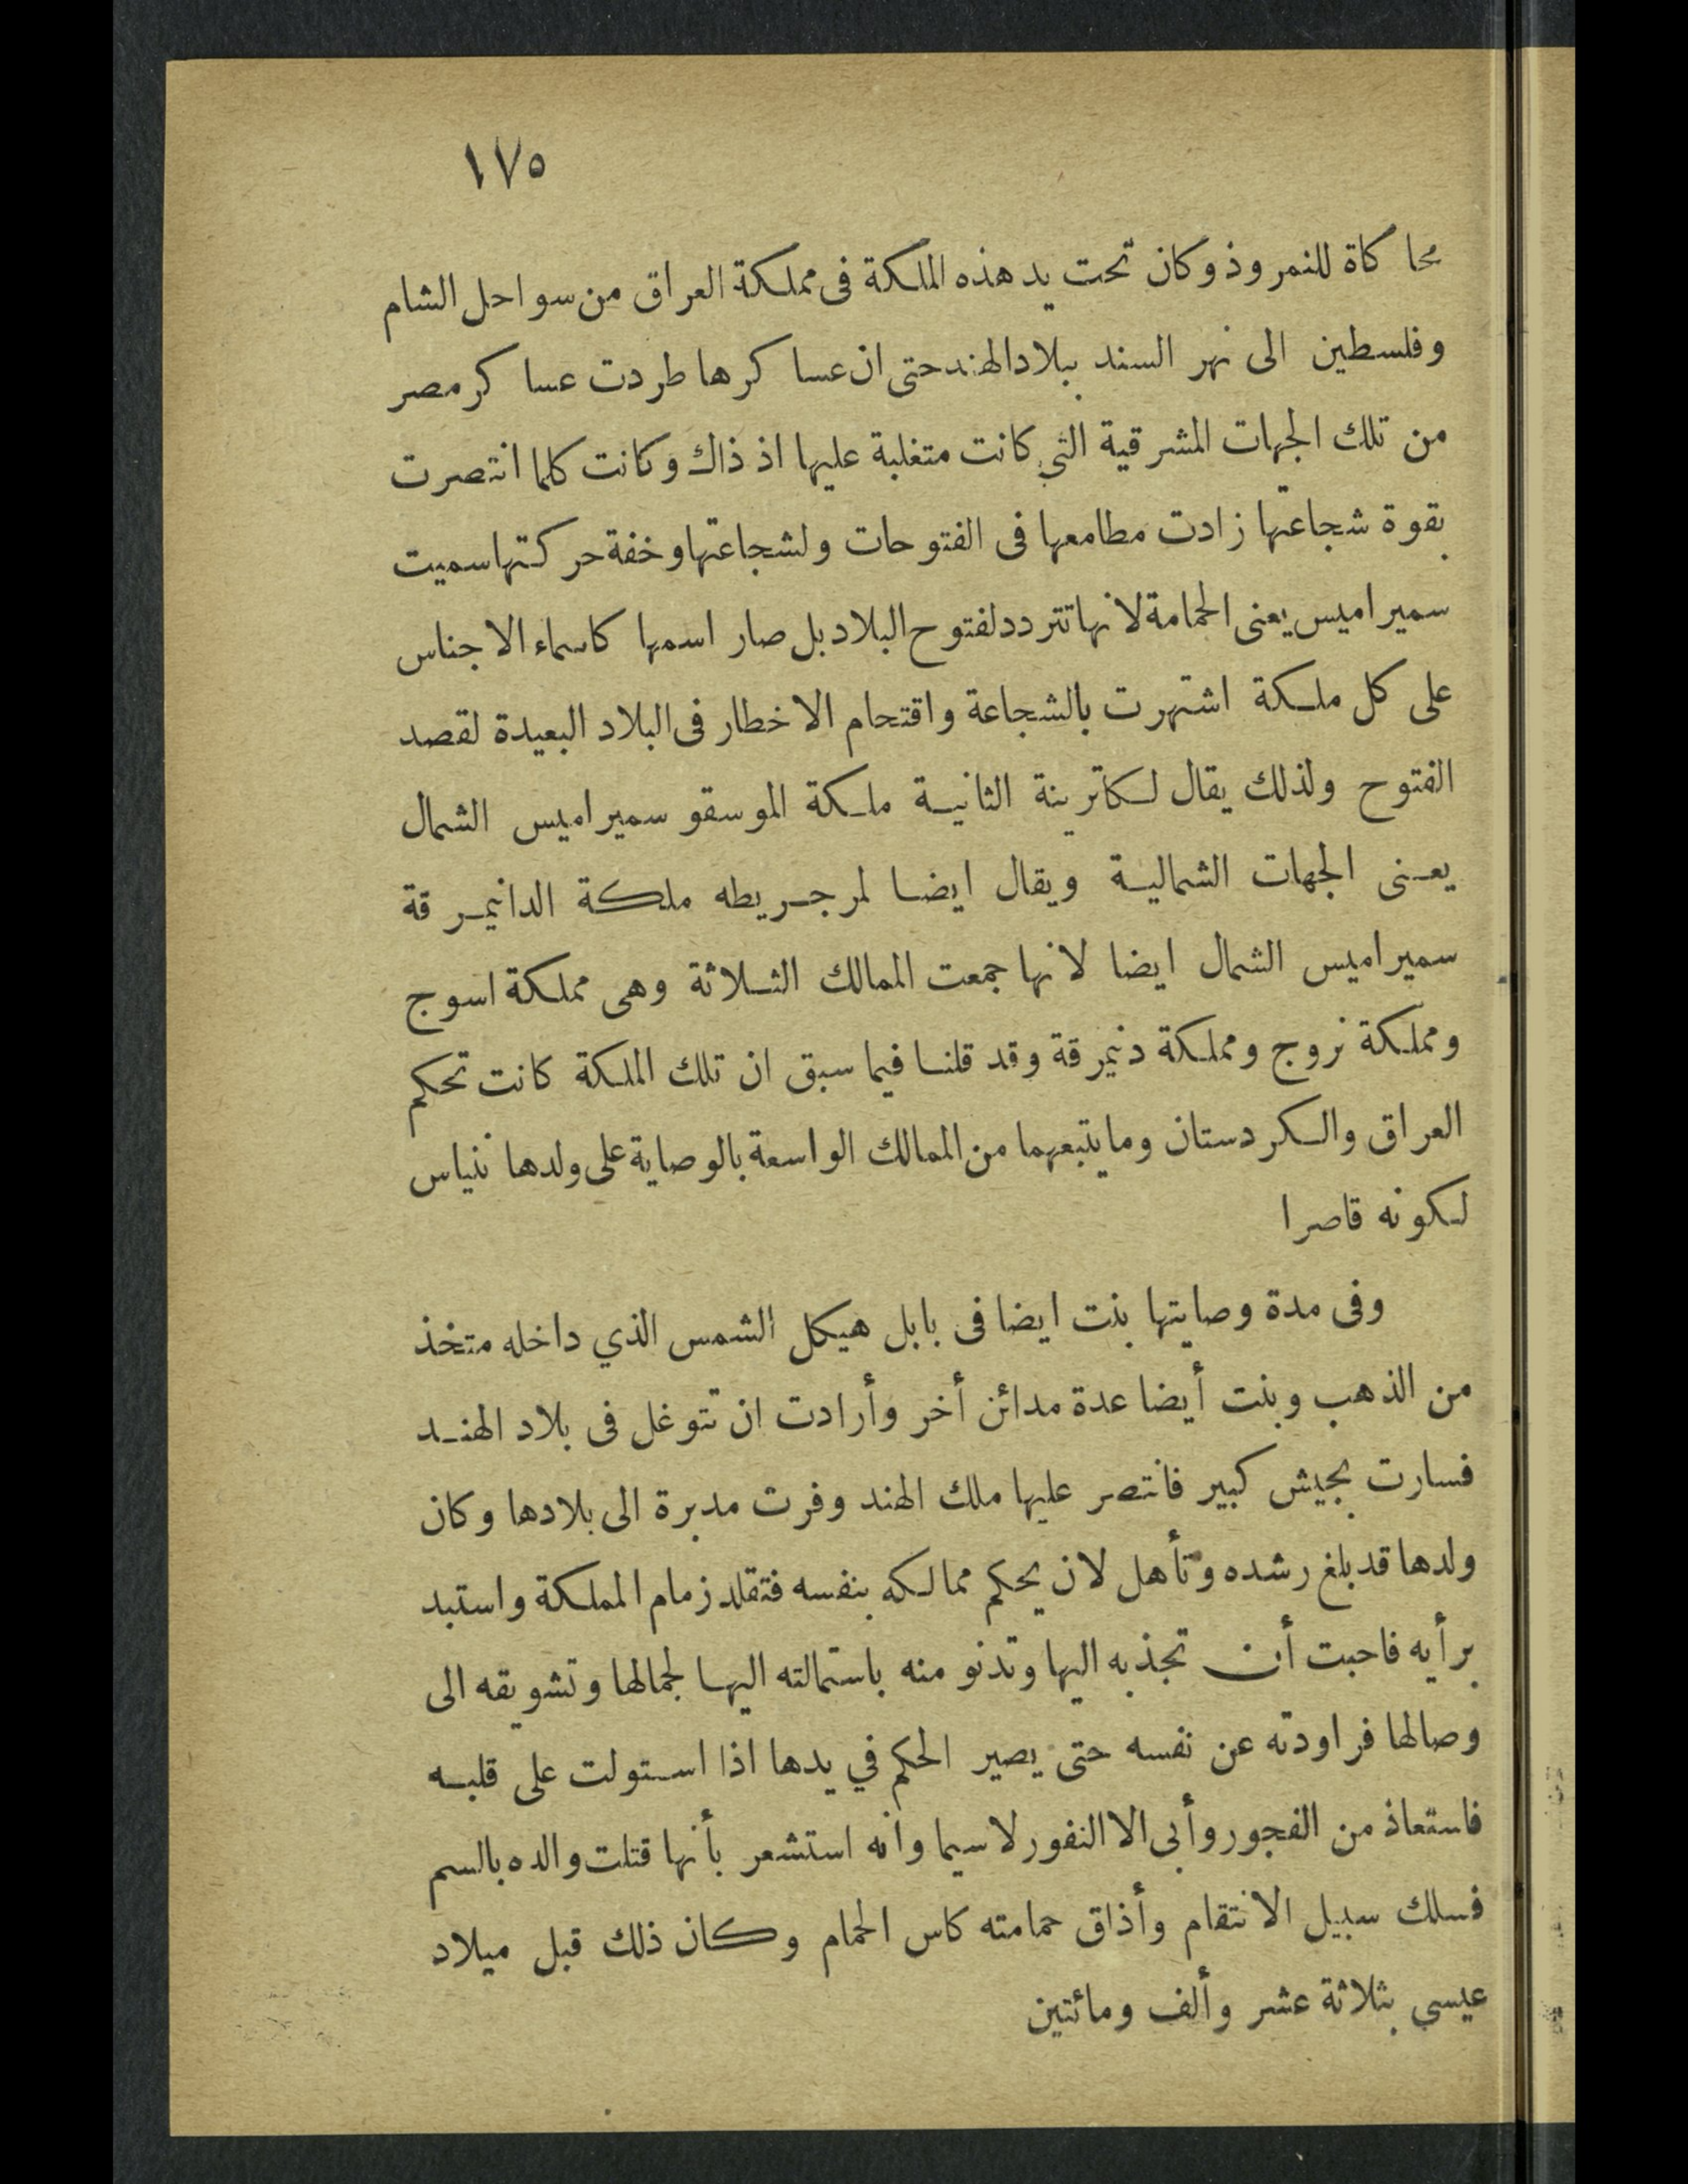 ١٧٥
محاكاة للنمروذ وكان تحت يد هذه الملكة فى مملكة العراق من سواحل الشام
وفلسطين الى نهر السند ببلاد الهند حتى ان عساكرها طردت عساكر مصر
من تلك الجهات المشرقية التي كانت متغلبة عليها اذ ذاك وكانت كلما انتصرت
بقوة شجاعتها زادت مطامعها فى الفتوحات ولشجاعتها وخفة حركتها سميت
سميراميس يعنى الحمامة لانها تتردد لفتوح البلاد بل صار اسمها كاسماء الاجناس
على كل ملكة اشتهرت بالشجاعة واقتحام الاخطار فى البلاد البعيدة لقصد
الفتوح ولذلك يقال لكاترينة الثانية ملكة الموسقو سميراميس الشمال
يعنى الجهات الشمالية ويقال ايضا لمرجريطه ملكة الدانيمرقة
سميراميس الشمال ايضا لانها جمعت الممالك الثلاثة وهى مملكة اسوج
ومملكة نروج ومملكة دنيمرقة وقد قلنا فيما سبق ان تلك الملكة كانت تحكم
العراق والكردستان وما يتبعهما من الممالك الواسعة بالوصاية على ولدها ننياس
لكونه قاصرا
وفى مدة وصايتها بنت ايضا فى بابل هيكل الشمس الذي داخله متخذ
من الذهب وبنت أيضا عدة مدائن أخر وأرادت ان تتوغل فى بلاد الهند
فسارت بجيش كبير فانتصر عليها ملك الهند وفرت مدبرة الى بلادها وكان
ولدها قد بلغ رشده وتأهل لان يحكم ممالكه بنفسه فتقلد زمام المملكة واستبد
برأيه فاحبت أن تجذبه اليها وتدنو منه باستمالته اليها لجمالها وتشويقه الى
وصالها فراودته عن نفسه حتى يصير الحكم في يدها اذا استولت على قلبه
فاستعاذ من الفجور وأبى الا النفور لا سيما وانه استشعر بأنها قتلت والده بالسم
فسلك سبيل الانتقام وأذاق حمامته كاس الحمام وكان ذلك قبل ميلاد
عيسي بثلاثة عشر وألف ومائتين